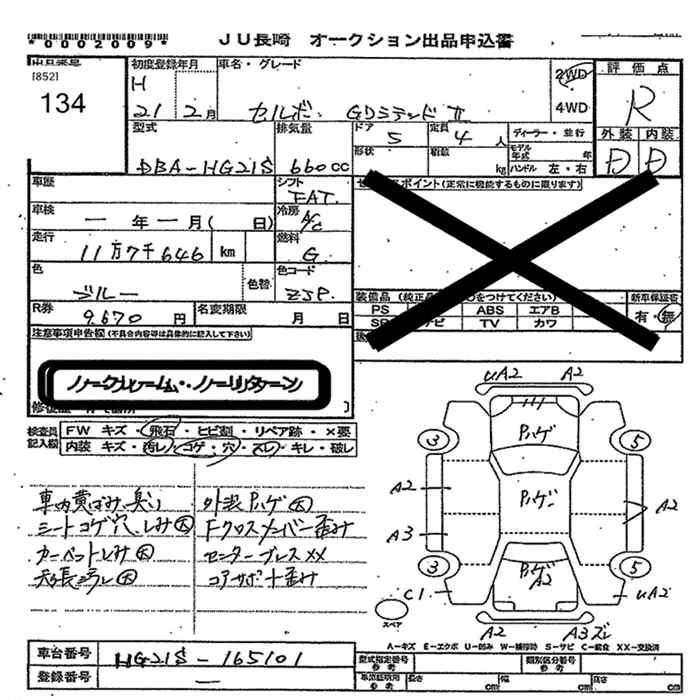 *0002009*
JU長崎 オークション出品申込書
[852]
134
初度登録年月
H
21 2月
車名・グレード
2WD
4WD
評価点
R
外装 内装
D D
型式
DBA-HG21S
排気量
660cc
ドア
5
定員
4人
形状
積載
kg
ディーラー・並行
モデル年式 年
ハンドル 左・右
車歴
シフト
FAT
車検
一年一月( 日)
冷房
A/C
走行
11万7千646 km
燃料
G
色
ブルー
色替
色コード
ZJP
R券
9.670円
名変期限
月 日
ポイント(正常に機能するものに限ります)
装備品
をつけてください)
PS
ABS
エアB
TV
カワ
新車保証書
有・無
注意事項申告欄(不具合内容等は具体的に記入して下さい)
ノークレーム・ノーリターン
検査員記入欄
FW キズ・飛石・ヒビ割・リペア跡・×要
内装 キズ・汚レ・コゲ・穴・スレ・キレ・破レ
車内黄ばみ、臭い
シートコゲ穴、しみ大
カーペットしみ大
天張シミ大
外装Pハゲ大
Fクロスメンバー歪み
センターブレスXX
コアサポート歪み
uA2 A2
Pハゲ
3 5
A2
Pハゲ
A2
A3
3 5
Pハゲ
A2
C1
uA2
スペア
A2
A3ズレ
A-キズ E-エクボ U-凹み W-補修跡 S-サビ C-腐食 XX-交換済
車台番号
HG21S-165101
登録番号
一
型式指定番号 参考
類別区分番号 参考
参考
長さ
cm
幅
cm
高さ
cm